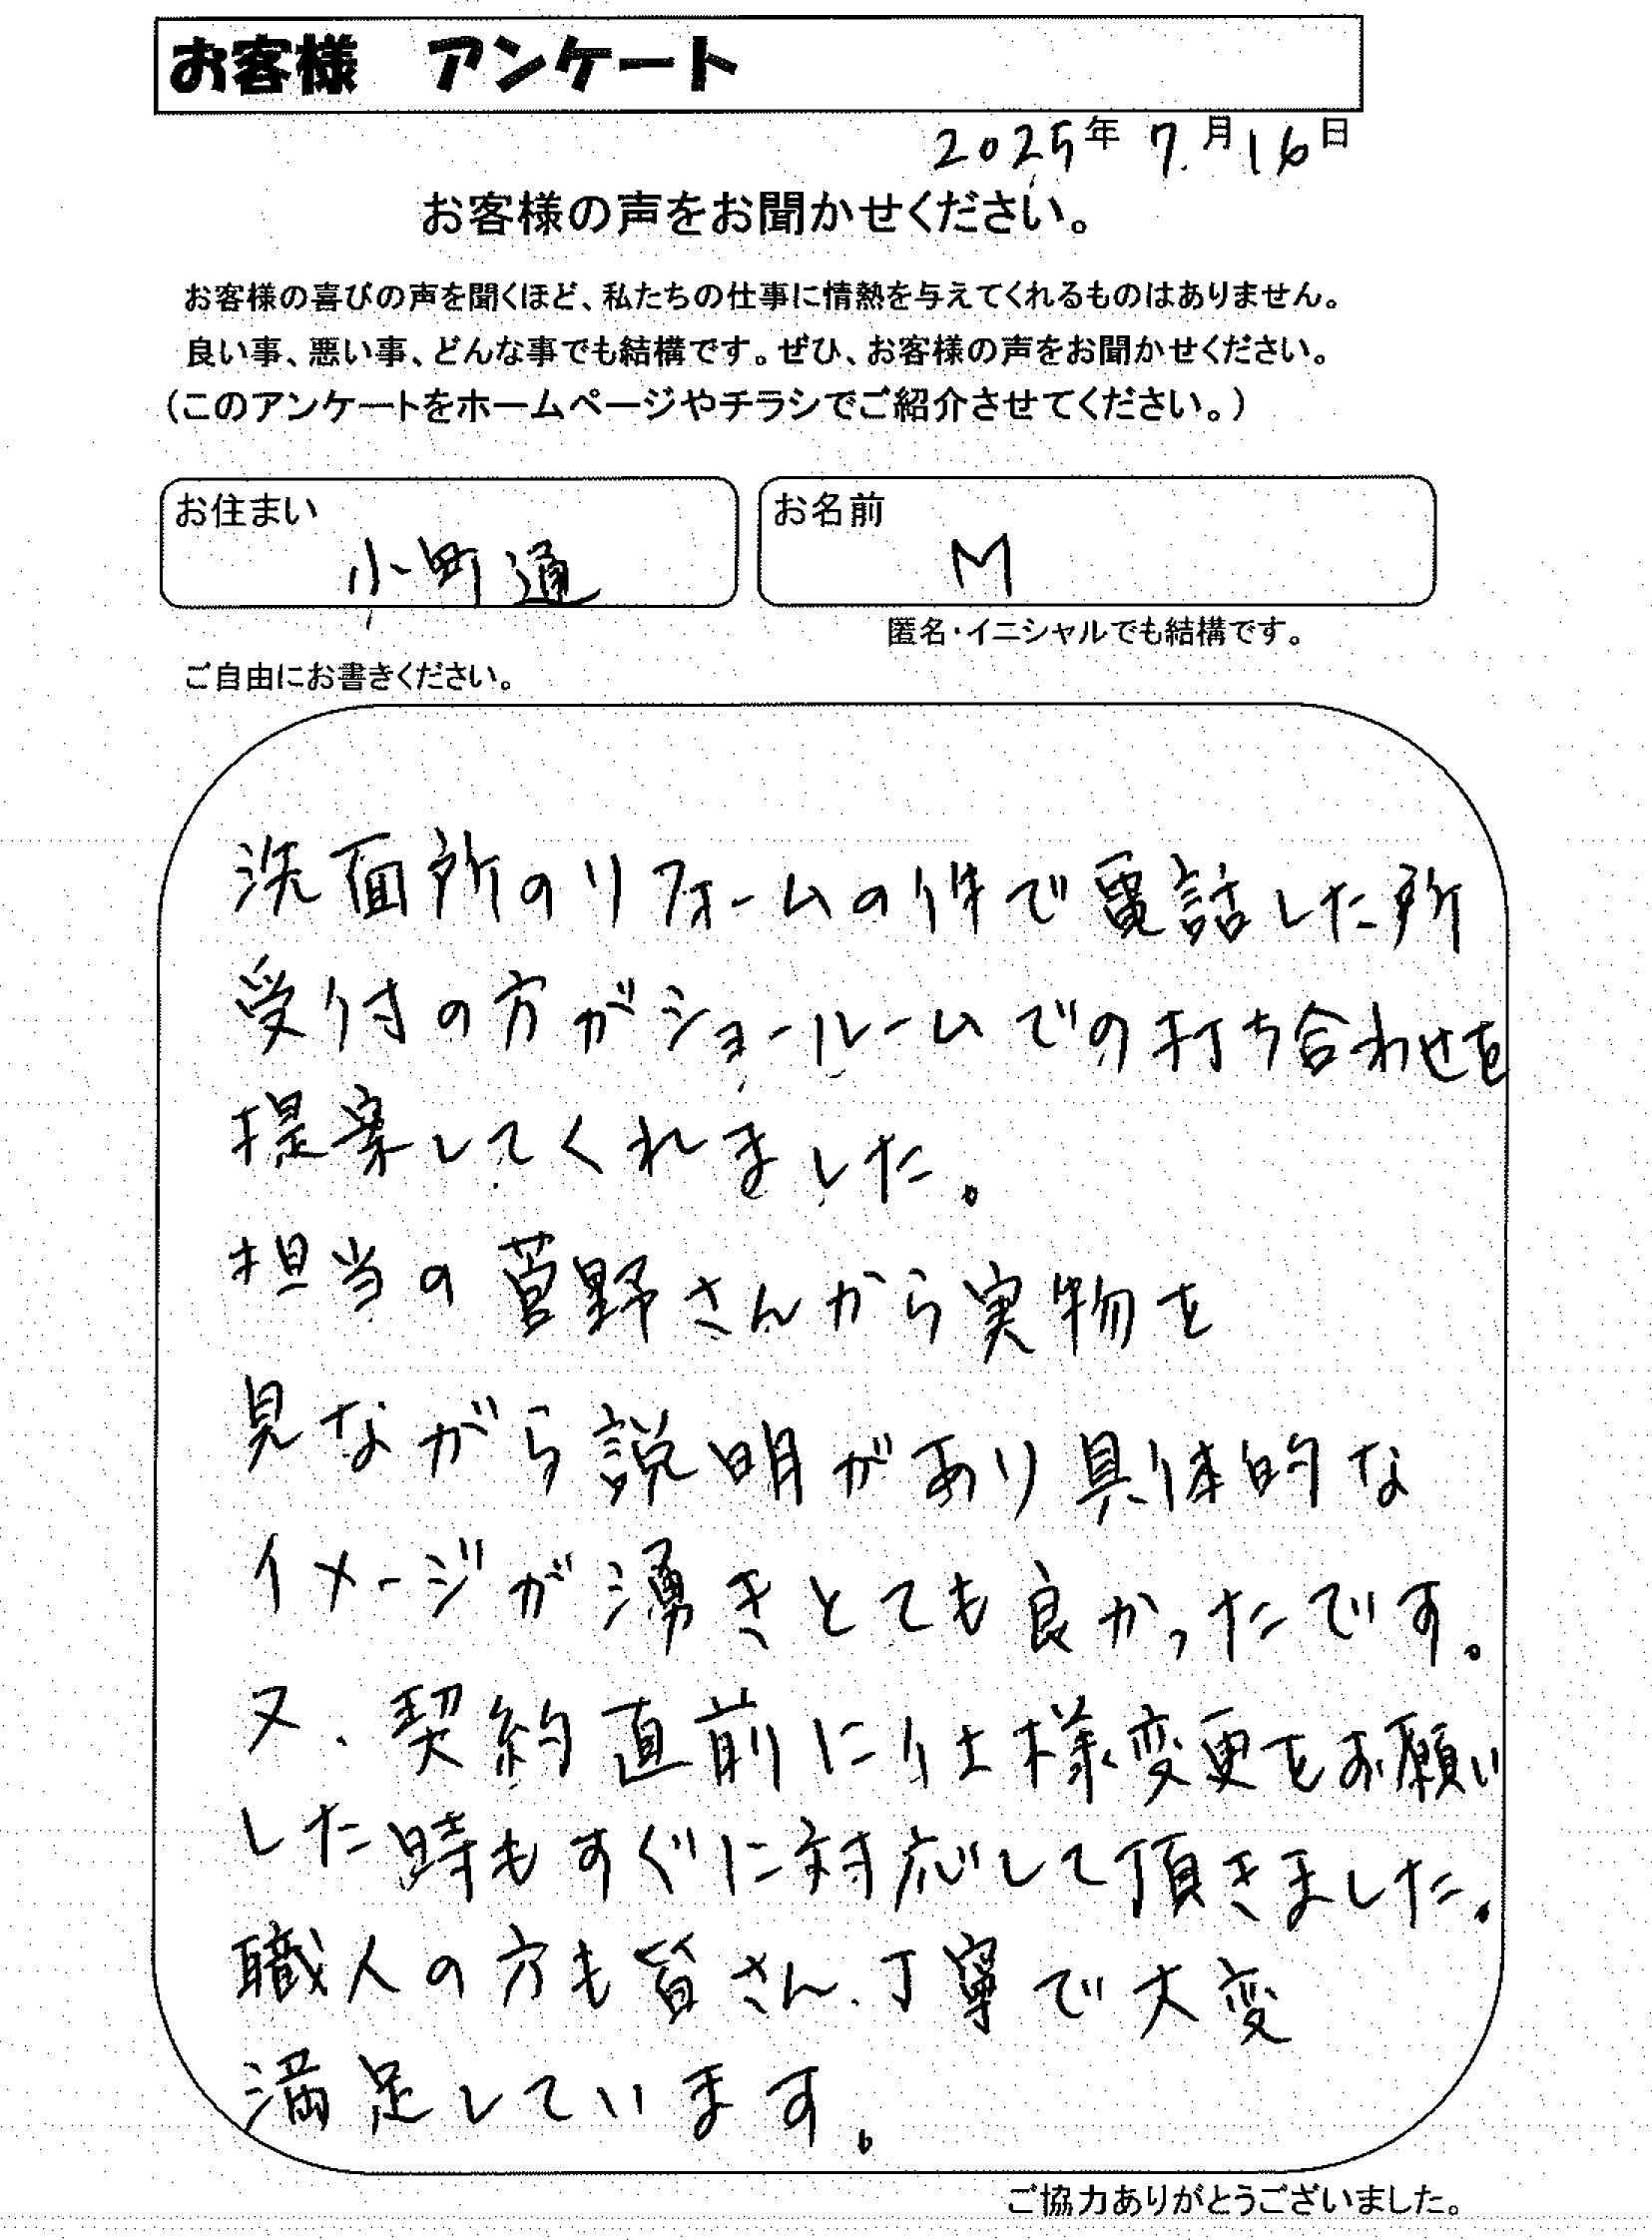 お客様　アンケート
2025年 7月16日
お客様の声をお聞かせください。
お客様の喜びの声を聞くほど、私たちの仕事に情熱を与えてくれるものはありません。
良い事、悪い事、どんな事でも結構です。ぜひ、お客様の声をお聞かせください。
（このアンケートをホームページやチラシでご紹介させてください。）
お住まい　小町通
お名前　M
匿名・イニシャルでも結構です。
ご自由にお書きください。
洗面所のリフォームの件で電話した所
受付の方がショールームでの打ち合わせを
提案してくれました。
担当の菅野さんから実物を
見ながら説明があり具体的な
イメージが湧きとても良かったです。
又、契約直前に仕様変更をお願い
した時もすぐに対応して頂きました。
職人の方も皆さん、丁寧で大変
満足しています。
ご協力ありがとうございました。